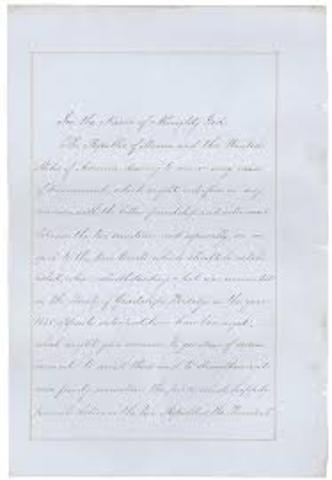 In the Name of Almighty God
The Republic of Mexico and the United
States of America desiring to remove every cause
of disagreement, which might interfere in any
manner with the better friendship and intercourse
between the two countries and especially, in
respect to the true limits which should be
established, when notwithstanding what was covenanted
in the Treaty of Guadalupe Hidalgo in the year
1848 opposite interpretations have been urged,
which might give occasion to questions of serious
moment to avoid these and to strengthen and
more firmly maintain the peace which happily
prevails between the two Republics the President